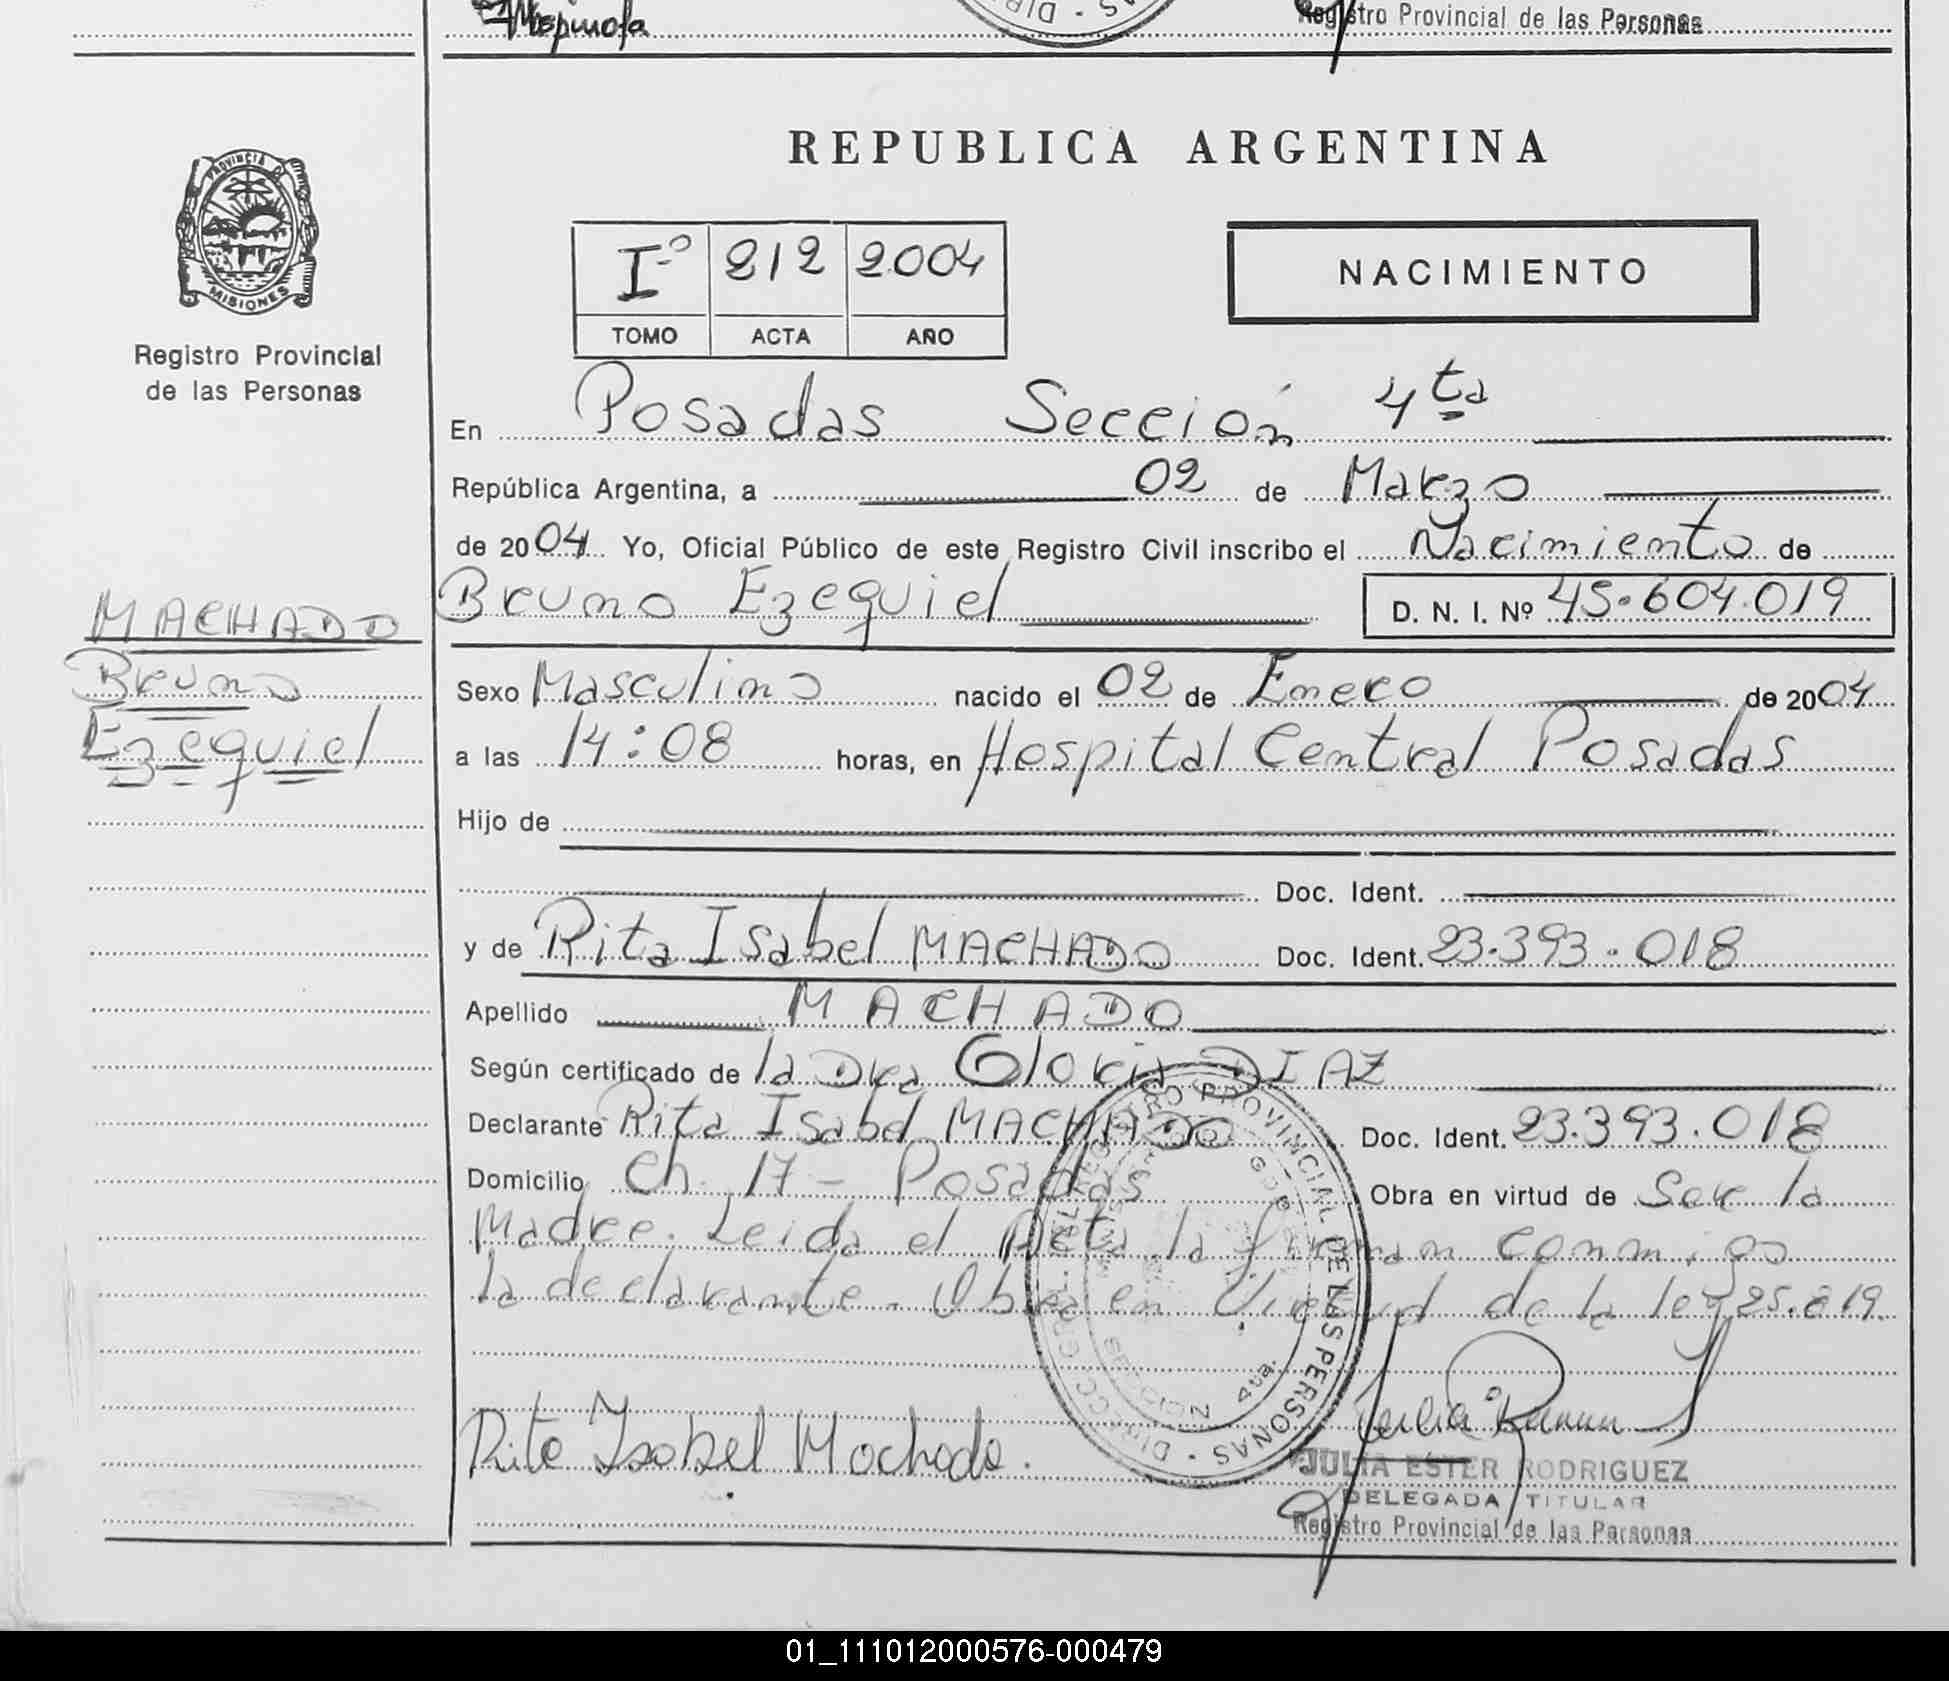 Registro Provincial de las Personas
REPUBLICA ARGENTINA
PROVINCIA D
MISIONES
Registro Provincial
de las Personas
Iº 212 2004
TOMO ACTA AÑO
NACIMIENTO
En Posadas Sección 4ta
República Argentina, a 02 de Marzo
de 2004 Yo, Oficial Público de este Registro Civil inscribo el Nacimiento de
Bruno Ezequiel D. N. I. Nº 45.604.019
MACHADO
Bruno
Ezequiel
Sexo Masculino nacido el 02 de Enero de 2004
a las 14:08 horas, en Hospital Central Posadas
Hijo de
Doc. Ident.
y de Rita Isabel MACHADO Doc. Ident. 23.393.018
Apellido MACHADO
Según certificado de la Dra Gloria DIAZ
Declarante Rita Isabel MACHADO Doc. Ident. 23.393.018
Domicilio Ch. 17 - Posadas Obra en virtud de Ser la
Madre. Leida el Acta la firman conmigo
la declarante. Obra en Virtud de la ley 25.819.
Rita Isabel Machado.
REGISTRO PROVINCIAL DE LAS PERSONAS
SECCION 4ta.
JULIA ESTER RODRIGUEZ
DELEGADA TITULAR
Registro Provincial de las Personas
01_111012000576-000479